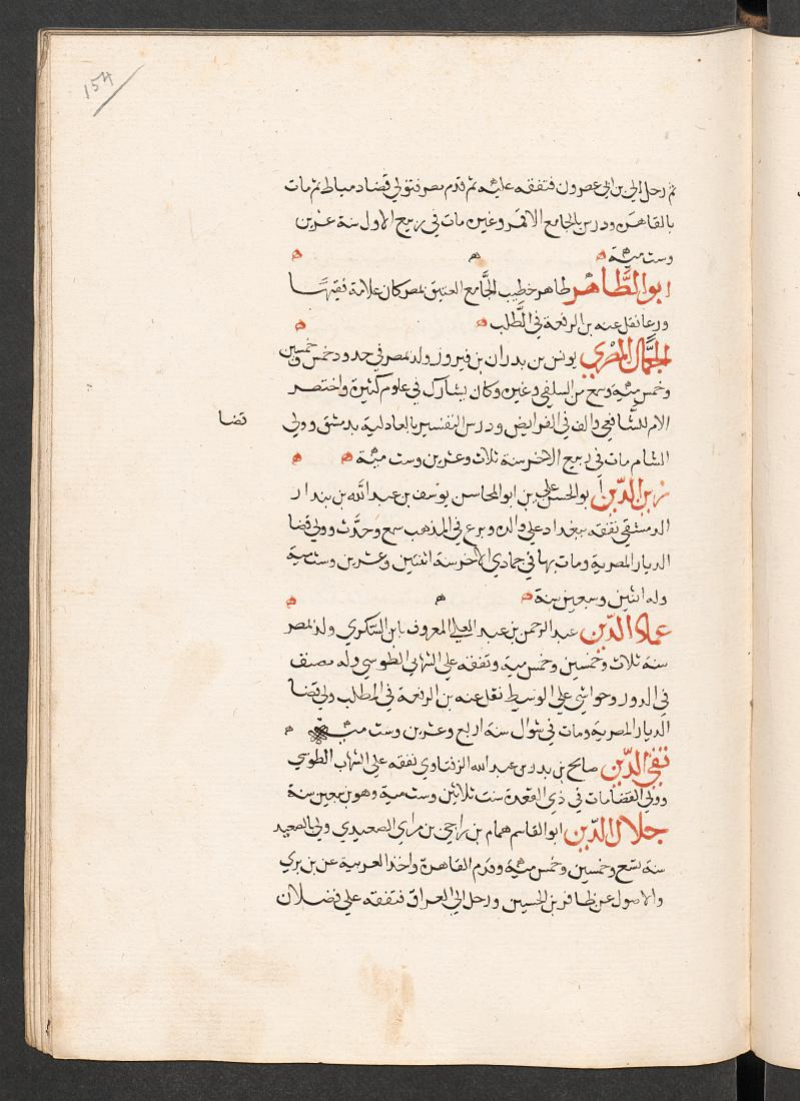 154
ثم رحل الي بن ابي عصرون فتفقه عليه ثم قدم مصر فتولي قضا دمياط ثم مات
بالقاهرة ودرس بالجامع الاقمر وغيره مات في ربيع الاول سنة عشرين
وست مئة ه ه ه
ابو الطَّاهر طاهر خطيب الجَّامع العتيق بمصر كان علامة فقيهـــا
وربما نقل عنه بن الرفعة في الطَّلب ه ه
الجمَّال المصْري يونس بن بدران بن فيروز ولد بمصر في حدود خمس وخمسين
وخمس مئة وسمع من السلفي وغيره وكان يشارك في علوم كثيرة واختصر
الام للشَّافعي والف في الفرايض ودرس التفسير بالعادلية بدمشق وولي قضا
الشام مات في ربيع الاخر سنة ثلاث وعشرين وست مئة ه ه
زين الدّين أبو الحسن علي بن ابو المحاسن يوسف بن عبد الله بن بندار
الدمشقي تفقه ببغداد علي والده وبرع في المذهب سمع وحدَّث وولي قضا
الديار المصرية ومات بها في جمادي الاخر سنة اثنتين وعشرين وست مية
وله اثنين وسبعين سنة ه ه ه
عماد الدّين عبد الرحمن بن عبد العلي المعروف بابن السّكري ولد بمصر
سنة ثلاث وخمسين وخمس مية وتفقه علي الشهاب الطوسي وله مصنف
في الدور وحواشي علي الوسيط نقل عنه بن الرفعة في المطلب ولي قضا
الديار المصرية ومات في شوال سنة اربع وعشرين وست مئـة ه
تقي الدّين صالح بن بدر بن عبد الله الزفتاوي تفقه علي الشهاب الطوسي
وولي القضا مات في ذي القعدة سنت ثلاثين وست مية وهو بن سبعين سنة
جلال الدّين ابو القاسم همام بن راجي بن سراي الصعيدي ولي بالصعيد
سنة تسع وخمسين وخمس مئة وقدم القاهرة واخذ العربية عن بن بري
والاصول عن ظافر بن الحسين ورحل الي العراق فتفقه علي فضــلان